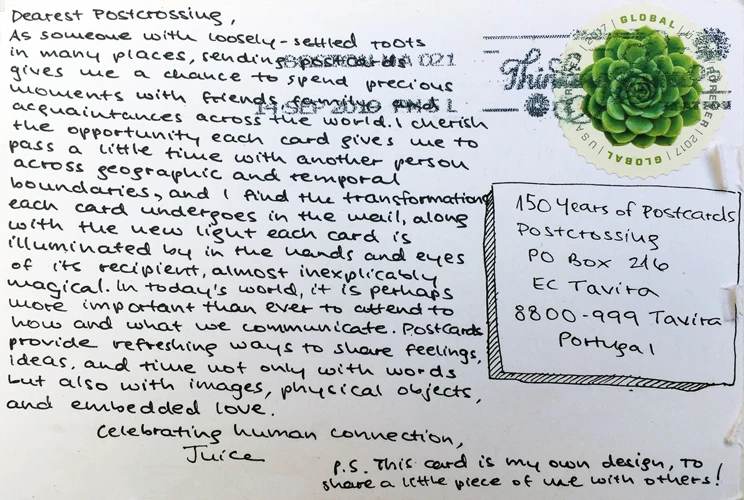 Dearest Postcrossing,
As someone with loosely-settled roots
in many places, sending postcards
gives me a chance to spend precious
moments with friends, family and
acquaintances across the world. I cherish
the opportunity each card gives me to
pass a little time with another person
across geographic and temporal
boundaries, and I find the transformations
each card undergoes in the mail, along
with the new light each card is
illuminated by in the hands and eyes
of its recipient, almost inexplicably
magical. In today's world, it is perhaps
more important than ever to attend to
how and what we communicate. Postcards
provide refreshing ways to share feelings,
ideas, and time not only with words
but also with images, physical objects,
and embedded love.
Celebrating human connection,
Juice
P.S. This card is my own design, to
share a little piece of me with others!
021
14 SEP 2019 PM 5 L
Think
GLOBAL | USA | FOREVER | 2017 | GLOBAL
150 Years of Postcards
Postcrossing
PO Box 216
EC Tavira
8800-999 Tavira
Portugal